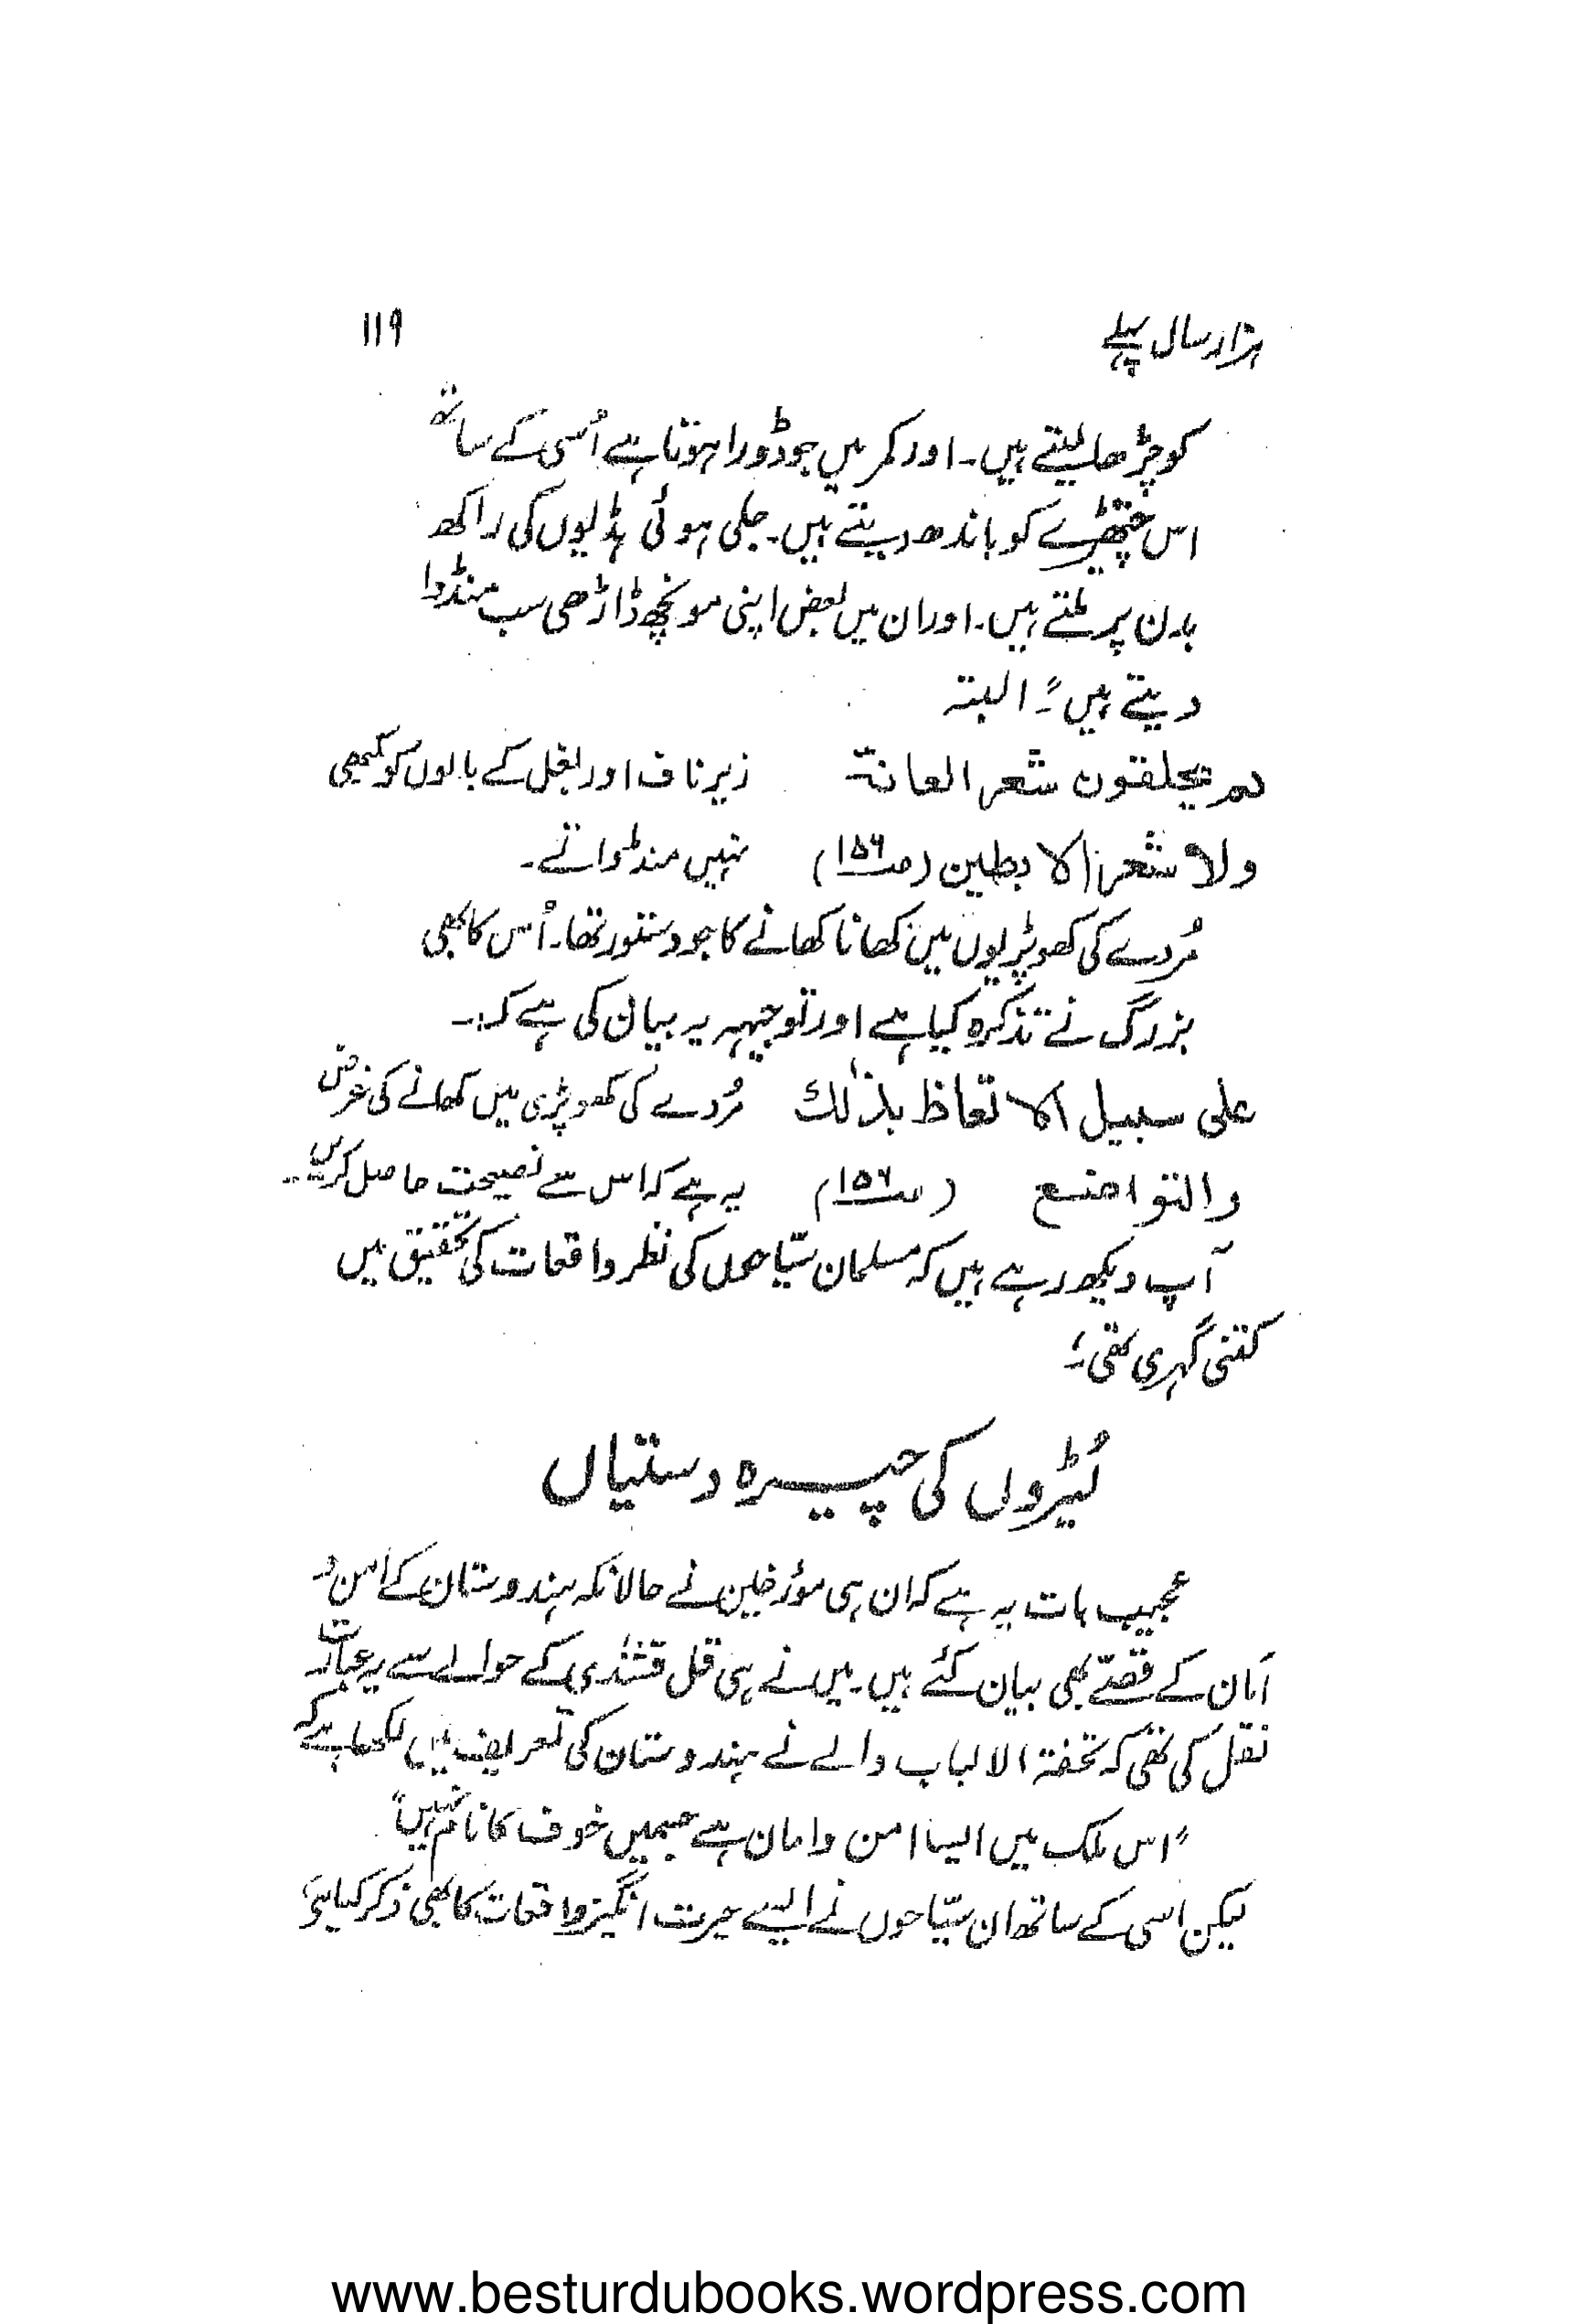 ہزار سال پہلے ۱۱۹
کو چڑھا لیتے ہیں۔ اور کمر میں جو ڈورا ہوتا ہے اُسی کے ساتھ
اس چتھڑے کو باندھ دیتے ہیں۔ جلی ہوئی ہڈیوں کی راکھ
بدن پر ملتے ہیں۔ اور ان میں بعض اپنی مونچھ ڈاڑھی سب منڈوا
دیتے ہیں"۔ البتہ
لم یحلقون شعر العانۃ زیر ناف اور بغل کے بالوں کو کبھی
ولا شعر الابطین (ص۱۵۶) نہیں منڈواتے۔
مُردے کی کھوپڑیوں میں کھانا کھانے کا جو دستور تھا۔ اُس کا بھی
بزرگ نے تذکرہ کیا ہے اور توجیہہ یہ بیان کی ہے کہ:۔
علی سبیل الاتعاظ بذٰلک مُردے کی کھوپڑی میں کھانے کی غرض
والتواضع (ص۱۵۶) یہ ہے کہ اس سے نصیحت حاصل کریں۔
آپ دیکھ رہے ہیں کہ مسلمان سیّاحوں کی نظر واقعات کی تحقیق میں
کتنی گہری تھی؛
لُٹیروں کی چیرہ دستیاں
عجیب بات یہ ہے کہ ان ہی مؤرخین نے حالانکہ ہندوستان کے امن و
اَمان کے قصّے بھی بیان کئے ہیں۔ میں نے ہی قلقشندی کے حوالے سے یہ عبارت
نقل کی تھی کہ تحفۃ الالباب والے نے ہندوستان کی تعریف میں لکھا ہے کہ
"اس ملک میں ایسا امن وامان ہے جسمیں خوف کا نام نہیں"
لیکن اسی کے ساتھ ان سیّاحوں نے ایسے حیرت انگیز واقعات کا بھی ذکر کیا ہے
www.besturdubooks.wordpress.com